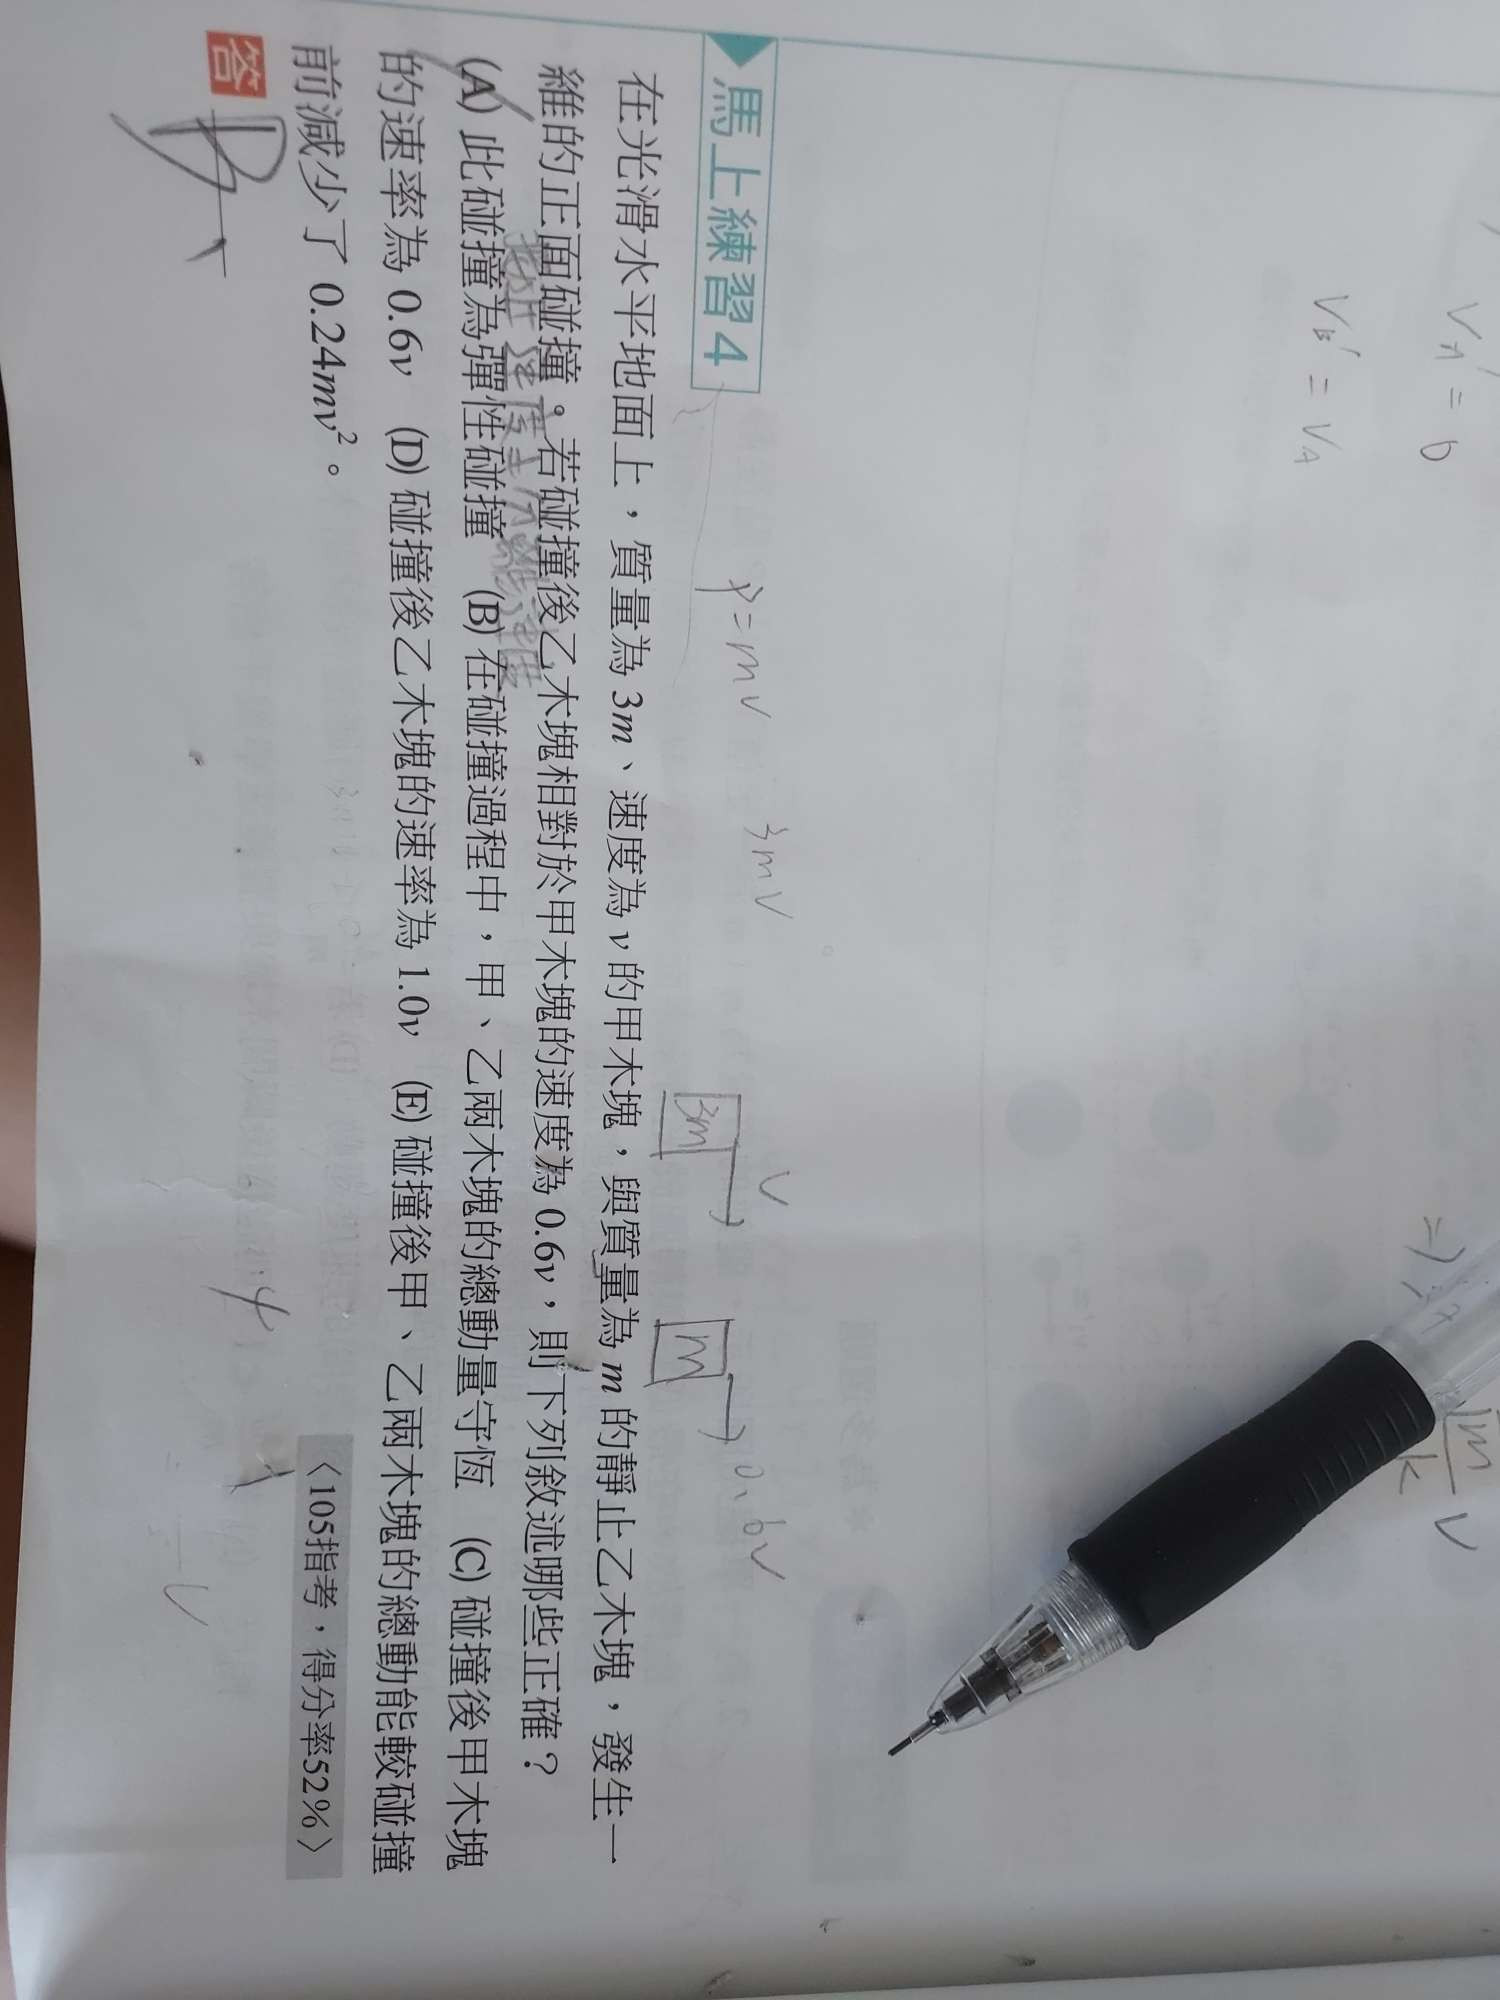 V_A' = 0
V_B' = V_A
馬上練習4
p = mv
3mv
3m
v
m
0.6v
在光滑水平地面上，質量為 3m、速度為 v 的甲木塊，與質量為 m 的靜止乙木塊，發生一
維的正面碰撞。若碰撞後乙木塊相對於甲木塊的速度為 0.6v，則下列敘述哪些正確？
(A) 此碰撞為彈性碰撞 (B) 在碰撞過程中，甲、乙兩木塊的總動量守恆 (C) 碰撞後甲木塊
的速率為 0.6v (D) 碰撞後乙木塊的速率為 1.0v (E) 碰撞後甲、乙兩木塊的總動能較碰撞
前減少了 0.24mv²。
〈105指考，得分率52%〉
答 B